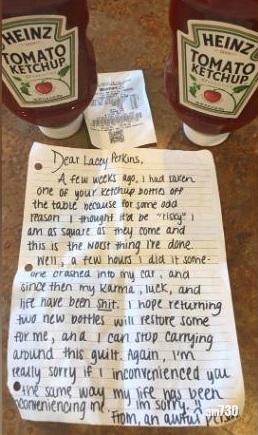 HEINZ
TOMATO
KETCHUP
HEINZ
TOMATO
KETCHUP
Dear Lacey Perkins,
A few weeks ago, I had taken
one of your ketchup bottles off
the table because for some odd
reason I thought it'd be "risky" I
am as square as they come and
this is the worst thing I've done.
Well, a few hours I did it some-
one crashed into my car, and
since then my karma, luck, and
life have been shit. I hope returning
two new bottles will restore some
for me, and I can stop carrying
around this guilt. Again, I'm
really sorry if I inconvenienced you
the same way my life has been
inconveniencing me. I'm sorry.
From, an awful person
am730